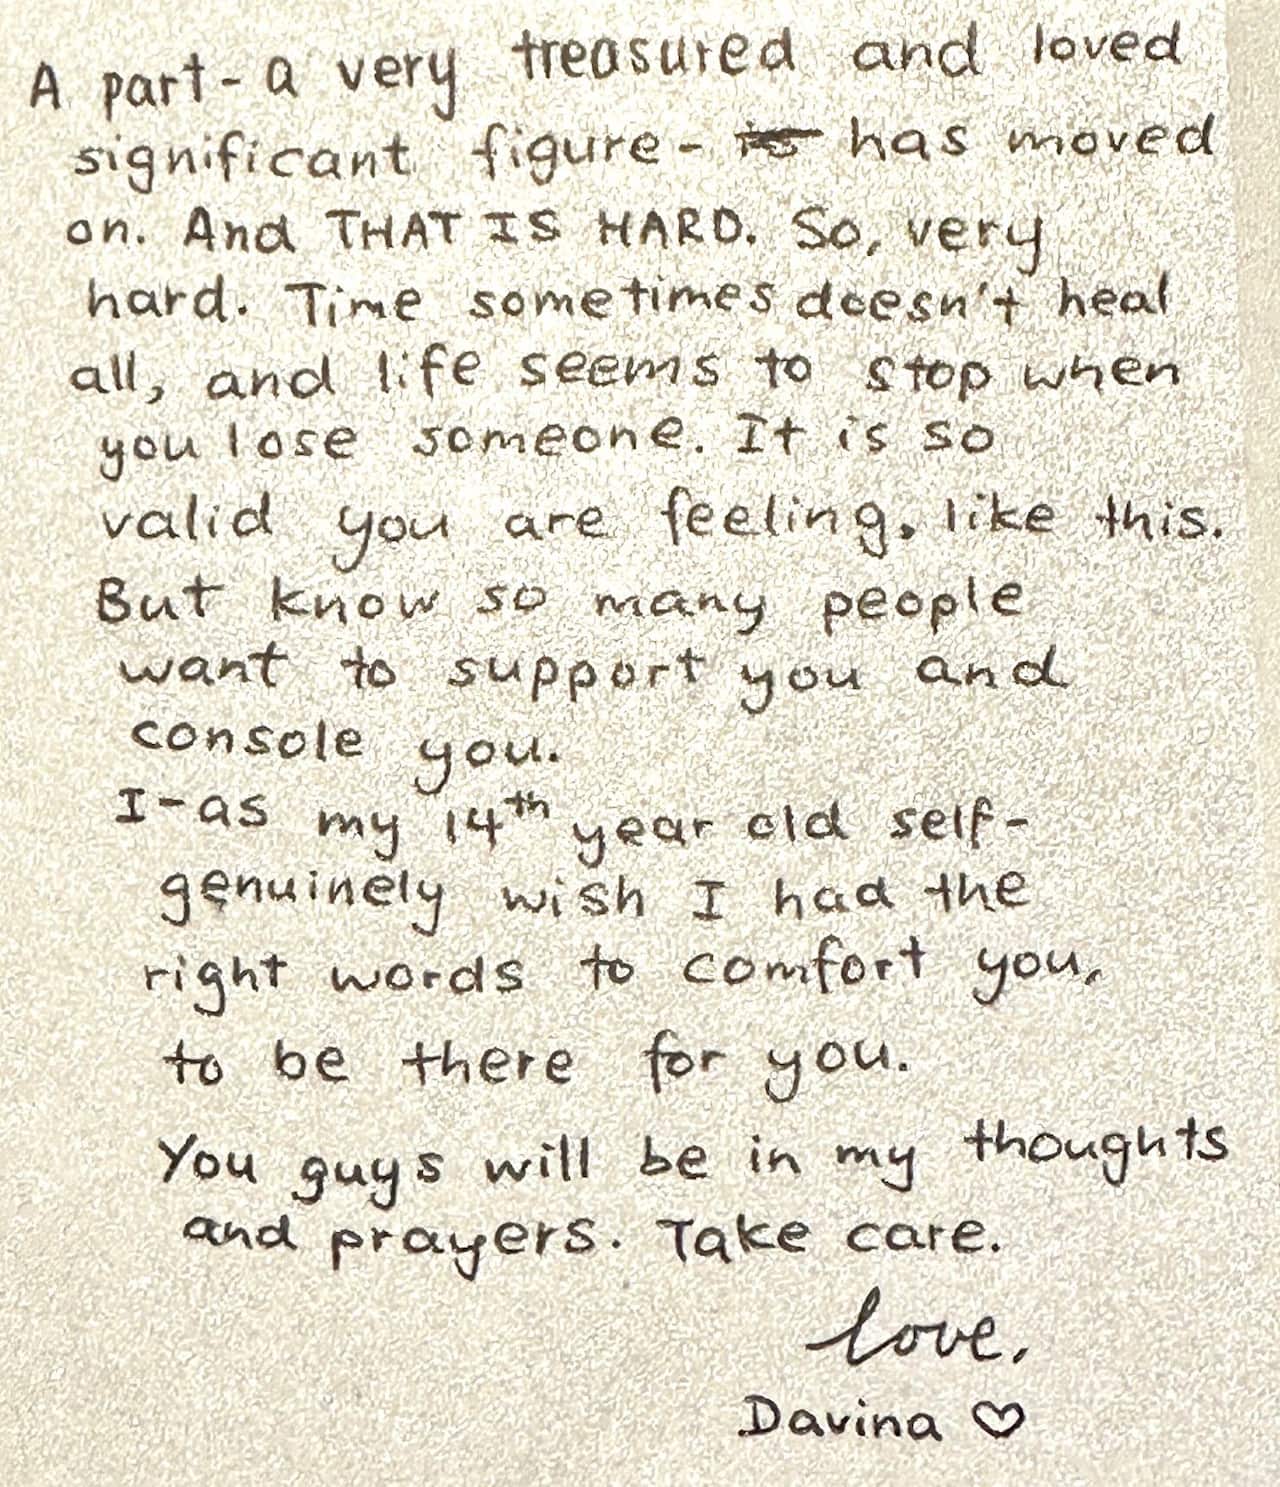 A part - a very treasured and loved
significant figure - has moved
on. And THAT IS HARD. So, very
hard. Time sometimes doesn't heal
all, and life seems to stop when
you lose someone. It is so
valid you are feeling, like this.
But know so many people
want to support you and
console you.
I - as my 14th year old self -
genuinely wish I had the
right words to comfort you,
to be there for you.
You guys will be in my thoughts
and prayers. Take care.
love,
Davina ♡